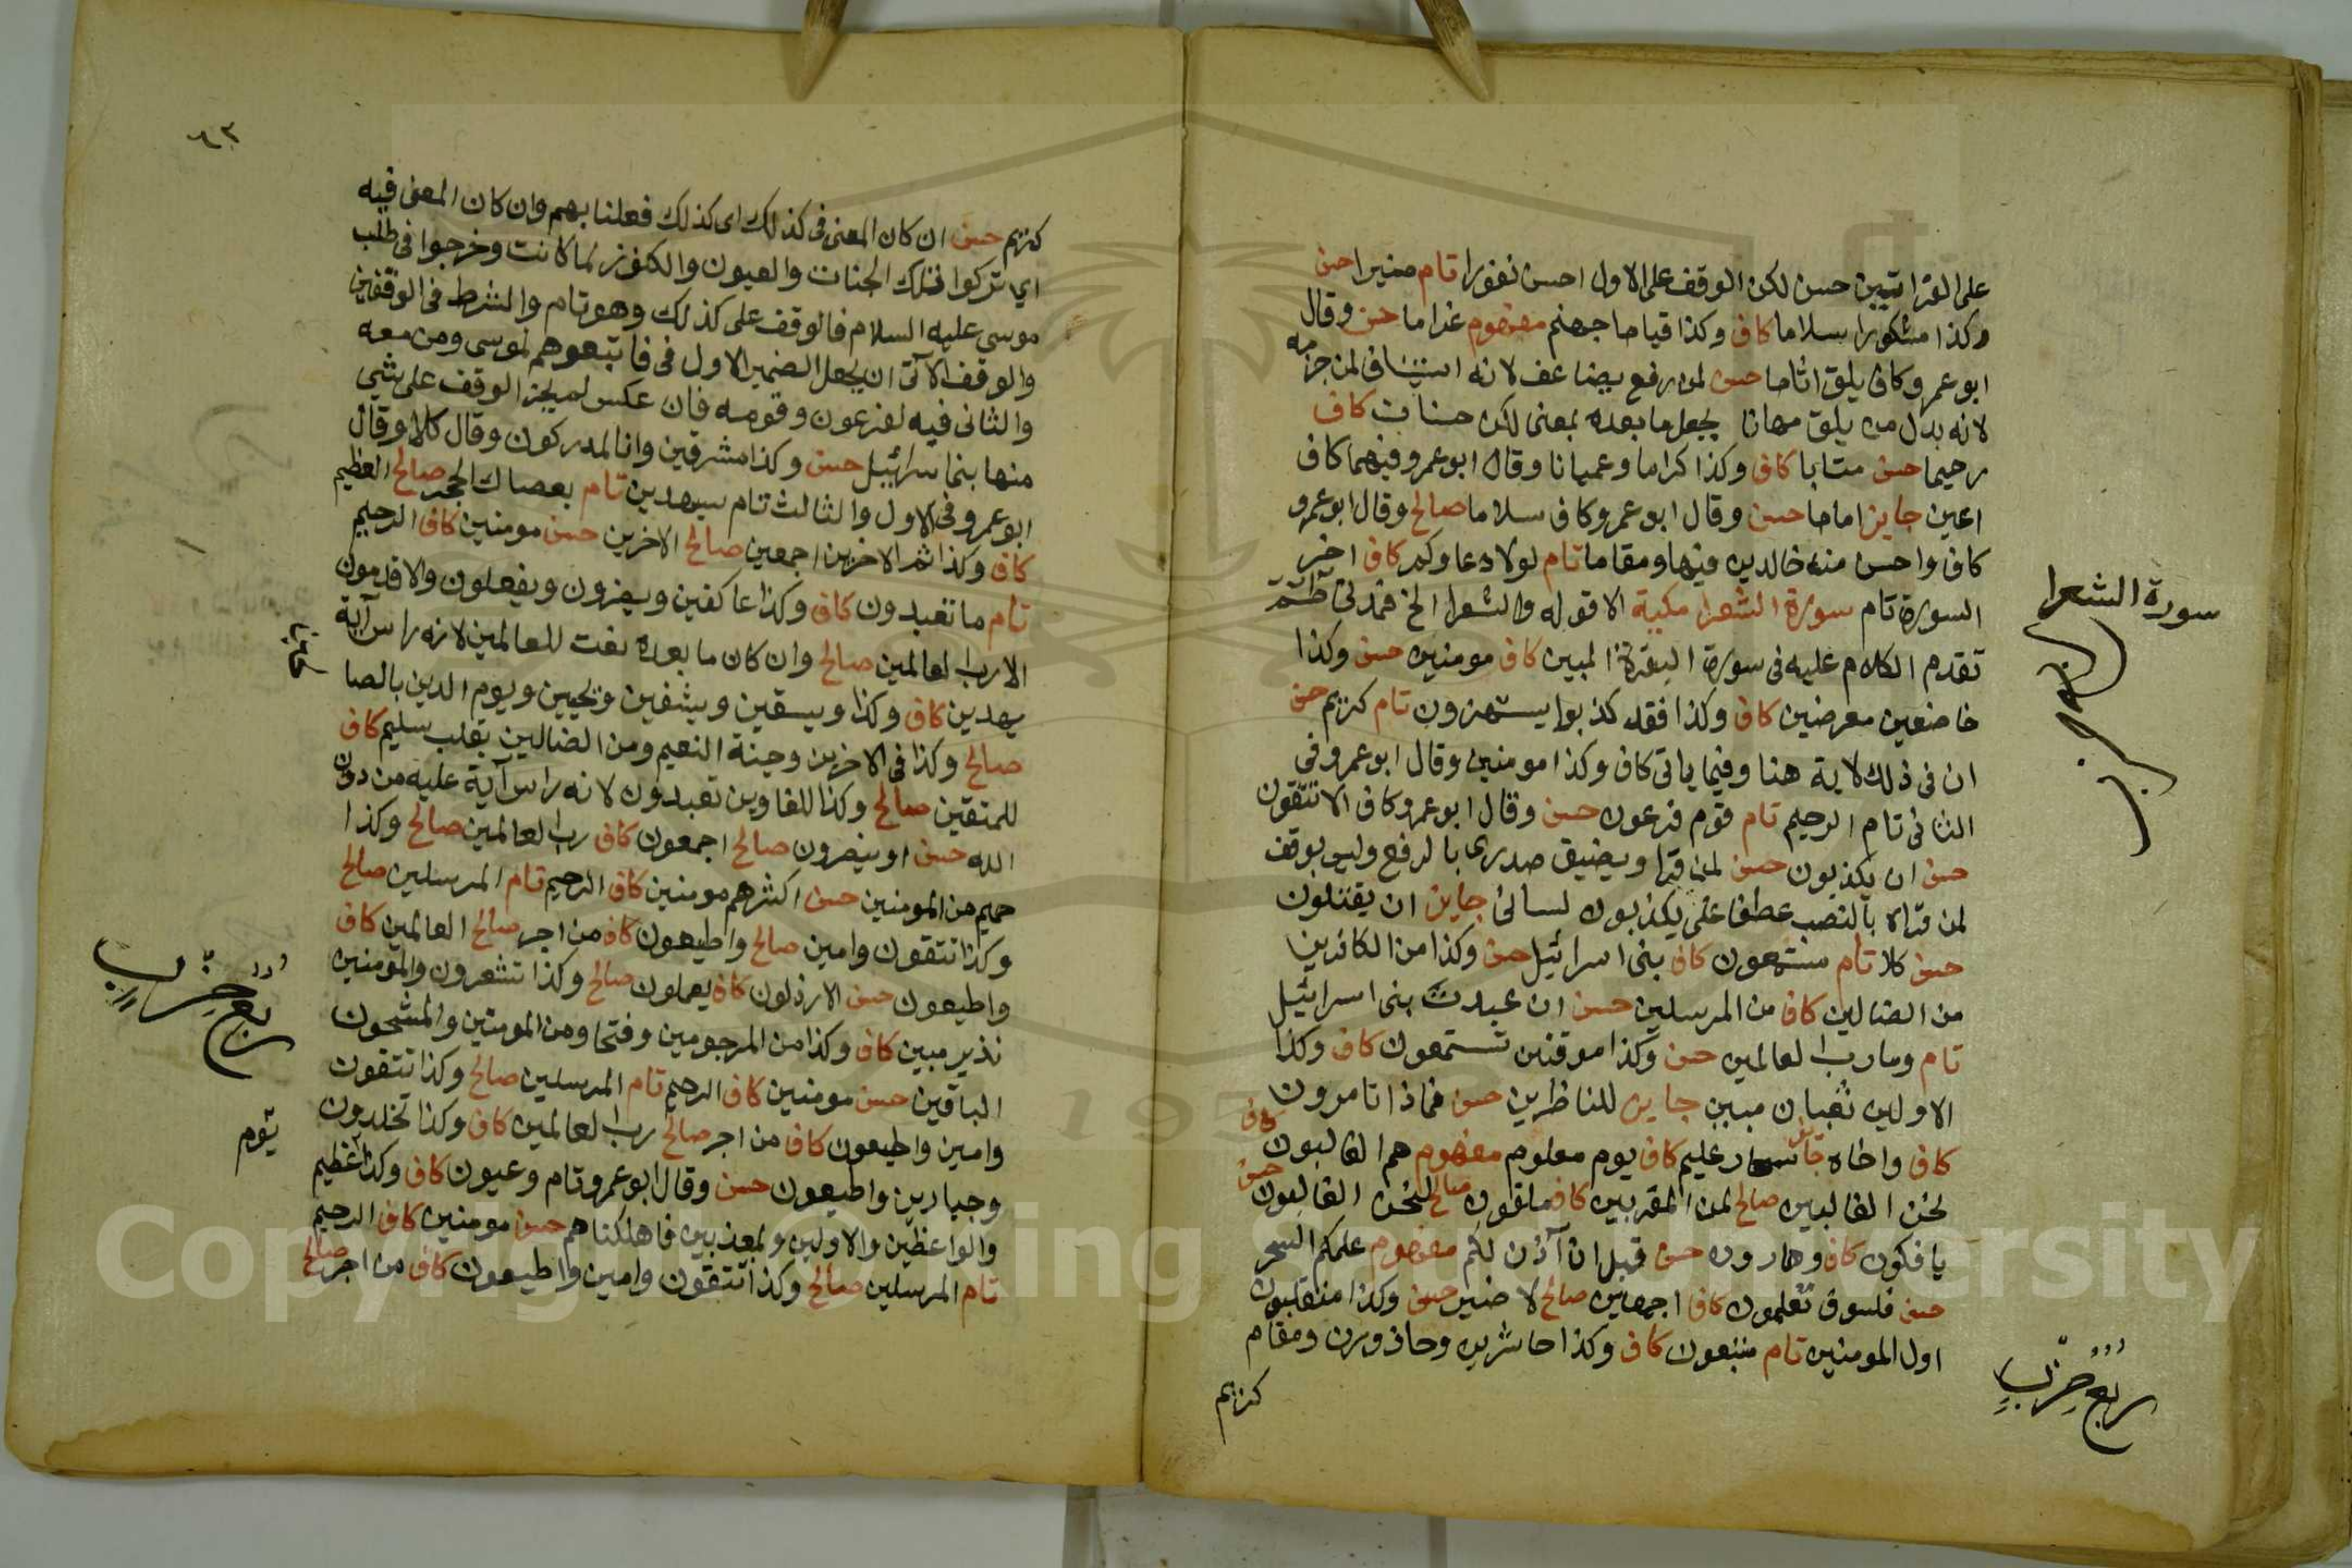 على القراتيين حسن لكن الوقف على الاول احسن نفورا تام منيرا حسن
وكذا مشكورا سلاما كاف وكذا قياما جهنم مفهوم غراما حسن وقال
ابو عمرو كاف يلق اثاما حسن لمن رفع يضاعف لانه استيناف لمن جزمه
لانه بدل من يلق مهانا يجعل ما بعده بمعنى لكن حسنات كاف
رحيما حسن متابا كاف وكذا كراما وعميانا وقال ابو عمرو فيهما كاف
اعين جايز اماما حسن وقال ابو عمرو كاف سلاما صالح وقال ابو عمرو
كاف واحسن منه خالدين فيها ومقاما تام لولا دعاوكم كاف اخر
السورة تام سورة الشعرا مكية الا قوله والشعرا الخ فمدني طسم
تقدم الكلام عليه فى سورة البقرة المبين كاف مومنين حسن وكذا
خاضعين معرضين كاف وكذا فقد كذبوا يستهزون تام كريم حسن
ان فى ذلك لاية هنا وفيما ياتى كاف وكذا مومنين وقال ابو عمرو فى
الثانى تام الرحيم تام قوم فرعون حسن وقال ابو عمرو كاف الا تتقون
حسن ان يكذبون حسن لمن قرا ويضيق صدرى بالرفع وليس بوقف
لمن قراه بالنصب عطفا على يكذبون لسانى جايز ان يقتلون
حسن كلا تام مستمعون كاف بنى اسرائيل حسن وكذا من الكافرين
من الضالين كاف من المرسلين حسن ان عبدت بنى اسرائيل
تام وما رب العالمين حسن وكذا موقنين تستمعون كاف وكذا
الاولين ثعبان مبين جايز للناظرين حسن فماذا تامرون
كاف
كاف واخاه جائز سحار عليم كاف يوم معلوم مفهوم هم الغالبون
لنحن الغالبين صالح لمن المقربين كاف ملقون صالح لنحن الغالبون حسن
يافكون كاف وهارون حسن قبل ان آذن لكم مفهوم علمكم السحر
حسن فلسوف تعلمون كاف اجمعين صالح لا ضير حسن وكذا منقلبون
اول المومنين تام متبعون كاف وكذا حاشرين وحاذرون ومقام
كريم
سورة الشعرا
ربع حزب
٦٣
كريم حسن ان كان المعنى فى كذلك اى كذلك فعلنا بهم وان كان المعنى فيه
اي تركوا تلك الجنات والعيون والكنوز كما كانت وخرجوا فى طلب
موسى عليه السلام فالوقف على كذلك وهو تام والشرط فى الوقفين
والوقف الآتى ان يجعل الضمير الاول فى فاتبعوهم لموسى ومن معه
والثانى فيه لفرعون وقومه فان عكس لم يجز الوقف على شي
منها بنى اسرائيل حسن وكذا مشرقين وانا لمدركون وقال كلا وقال
ابو عمرو فى الاول والثالث تام سيهدين تام بعصاك الحجر صالح العظيم
كاف وكذا ثم الاخرين اجمعين صالح الاخرين حسن مومنين كاف الرحيم
تام ما تعبدون كاف وكذا عاكفين ويضرون ويفعلون والاقدمون
الا رب العالمين صالح وان كان ما بعده نعت للعالمين لانه راس آية
يهدين كاف وكذا ويسقين ويشفين ويحيين ويوم الدين بالصا
صالح وكذا فى الاخرين وجنة النعيم ومن الضالين بقلب سليم كاف
للمتقين صالح وكذا للغاوين تعبدون لانه راس آية عليه من دون
الله حسن او ينصرون صالح اجمعون كاف رب العالمين صالح وكذا
حميم من المومنين حسن اكثرهم مومنين كاف الرحيم تام المرسلين صالح
وكذا تتقون وامين صالح واطيعون كاف من اجر صالح العالمين كاف
واطيعون حسن الارذلون كاف يعملون صالح وكذا تشعرون والمومنين
نذير مبين كاف وكذا من المرجومين وفتحا ومن المومنين والمشحون
الباقين حسن مومنين كاف الرحيم تام المرسلين صالح وكذا تتقون
وامين واطيعون كاف من اجر صالح رب العالمين كاف وكذا تخلدون
وجبارين واطيعون حسن وقال ابو عمرو تام وعيون كاف وكذا عظيم
والواعظين والاولين وبمعذبين فاهلكناهم حسن مومنين كاف الرحيم
تام المرسلين صالح وكذا تتقون وامين واطيعون كاف من اجر صالح
ربع حزب
Copyright © King Saud University
1957